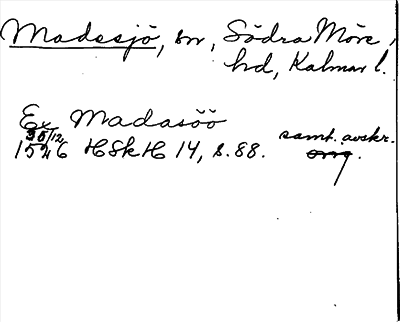 Madesjö, sn, Södra Möre,
hd, Kalmar l.
Ex Madasöö
30/12
1546 HSkH 14, s. 88. samt. avskr.
orig.